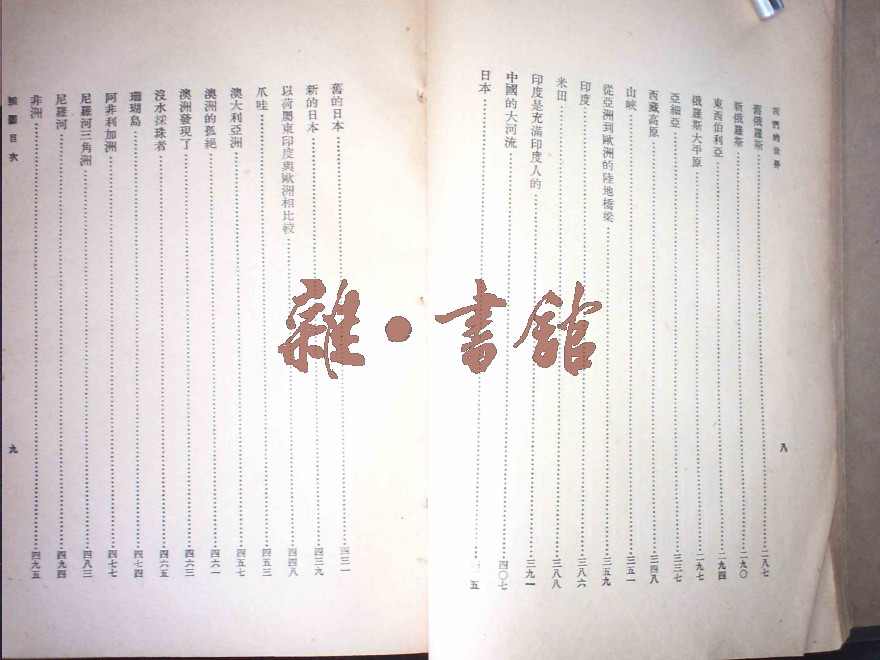 我們的世界
舊俄羅斯 二八七
新俄羅斯 二九〇
東西伯利亞 二九四
俄羅斯大平原 二九七
亞細亞 三三七
西藏高原 三四八
山峽 三五一
從亞洲到歐洲的陸地橋梁 三五九
印度 三八六
米田 三八八
印度是充滿印度人的 三九一
中國的大河流 四〇七
日本 五
八
舊的日本 四三一
新的日本 四三九
以荷屬東印度與歐洲相比較 四四八
爪哇 四五三
澳大利亞洲 四五七
澳洲的孤絕 四六一
澳洲發現了 四六三
沒水採珠者 四六五
珊瑚島 四七四
阿非利加洲 四七七
尼羅河三角洲 四八三
尼羅河 四九四
非洲 四九五
插圖目次
九
雜·書館